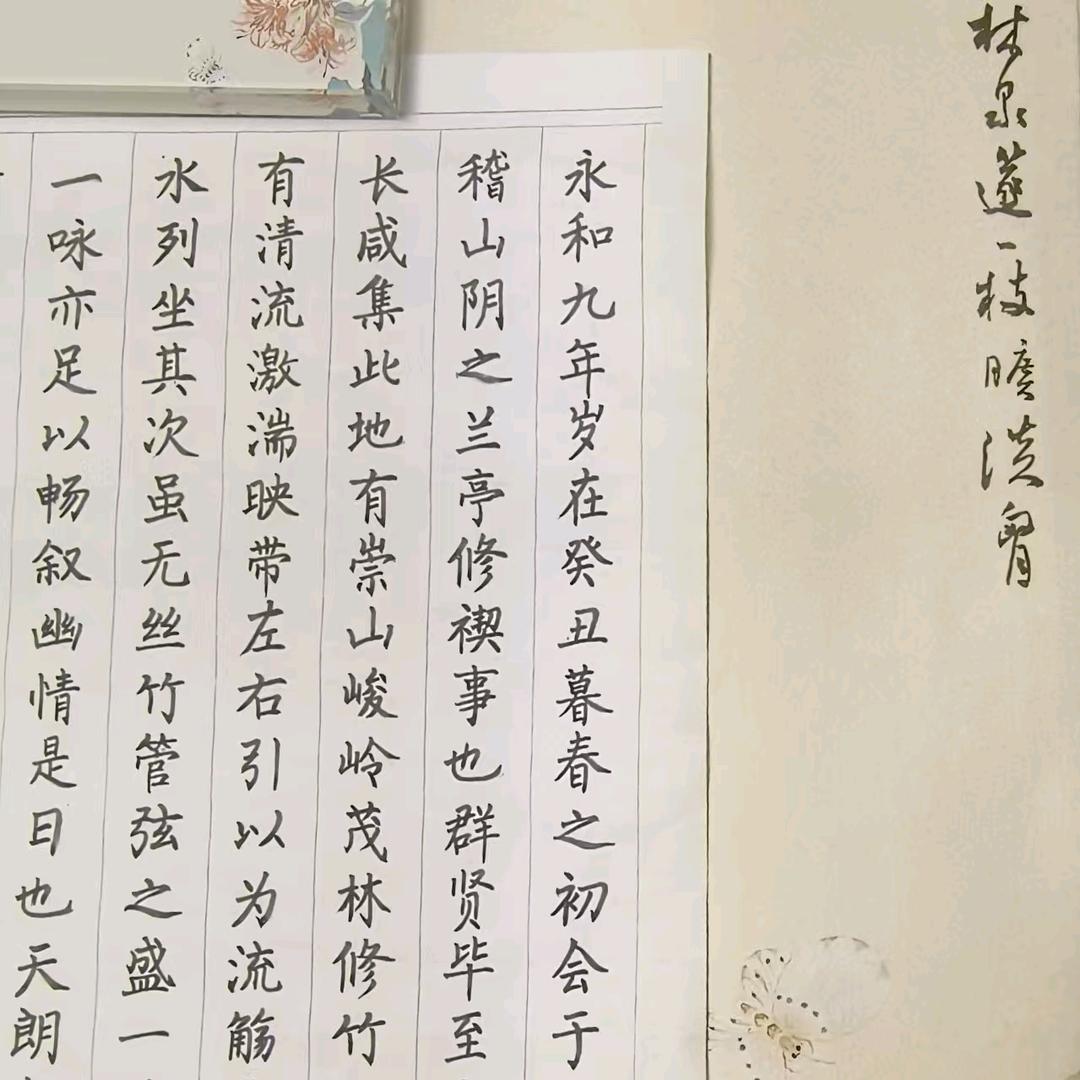 林泉 一枝曠淡
永和九年岁在癸丑暮春之初会于
稽山阴之兰亭修禊事也群贤毕至
长咸集此地有崇山峻岭茂林修竹
有清流激湍映带左右引以为流觞
水列坐其次虽无丝竹管弦之盛一
一咏亦足以畅叙幽情是日也天朗